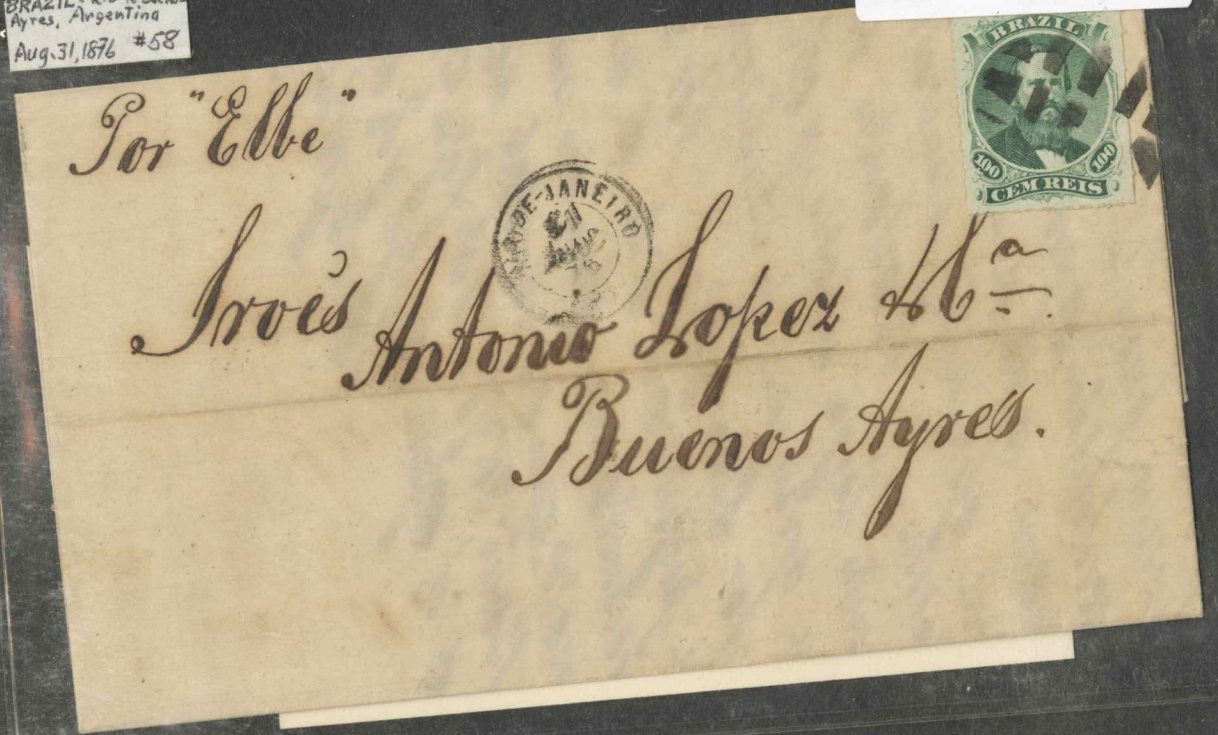 BRAZIL - Rio to Buenos
Ayres, Argentina
Aug. 31, 1876 #58
BRAZIL
100 100
CEM REIS
Por "Elbe"
RIO-DE-JANEIRO
31
Sroês
Antonio Lopez & Cª
Buenos Ayres.